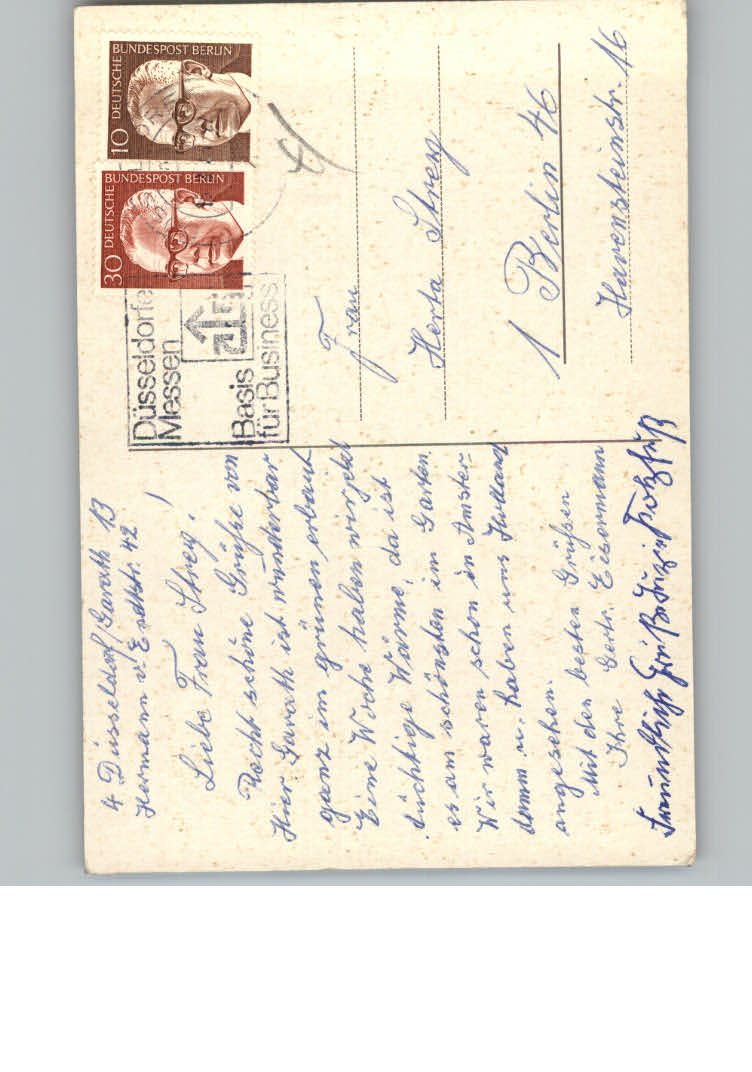 4 Düsseldorf/Garath 13
Hermann u. Endtstr. 42
Liebe Frau Streg!
Recht schöne Grüße von
Hier Garath ist wunderbar
ganz im grünen erbaut
Eine Woche haben wir jetzt
tüchtige Wärme, da ist
es am schönsten im Garten
Wir waren schon in Amster-
damm u. haben uns Holland
angesehen.
Mit den besten Grüßen
Ihre Gertr. Eisermann
Grüße
DEUTSCHE BUNDESPOST BERLIN
10
DEUTSCHE BUNDESPOST BERLIN
30
Düsseldorfer
Messen
Basis
für Business
Frau
Herta Streg
1 Berlin 46
Havensteinstr. 16